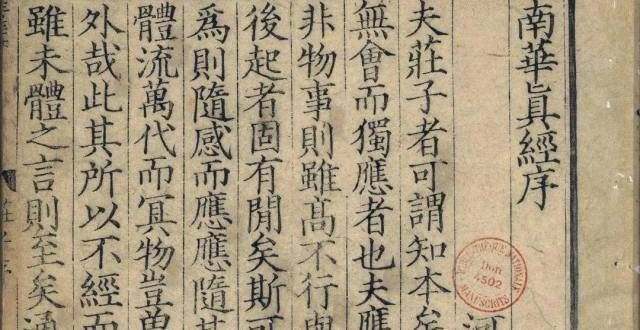 南華眞經序
夫莊子者可謂知本矣
無會而獨應者也夫應
非物事則雖髙不行與
後起者固有閒矣斯可
爲則隨感而應應隨其
體流萬代而冥物豈曽
外哉此其所以不經而
雖未體之言則至矣通
BIBLIOTHÈQUE NATIONALE
Don
4502
MANUSCRITS